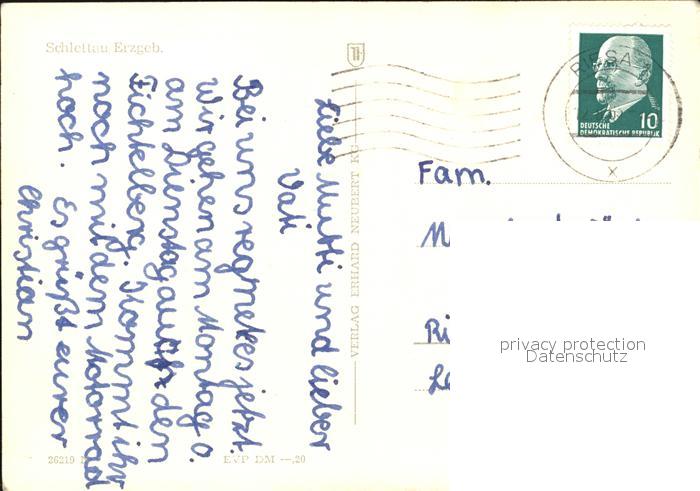 Schlettau Erzgeb.
Liebe Mutti und lieber
Vati
Bei uns regnet es jetzt.
Wir gehen am Montag o.
am Dienstag auf den
Fichtelberg. Kommt ihr
noch mit dem Motorrad
hoch. Es grüßt eurer
Christian
VERLAG ERHARD NEUBERT KG
26219
EVP DM --,20
RIESA
x
10
DEUTSCHE
DEMOKRATISCHE REPUBLIK
Fam.
M
Ri
privacy protection
Datenschutz